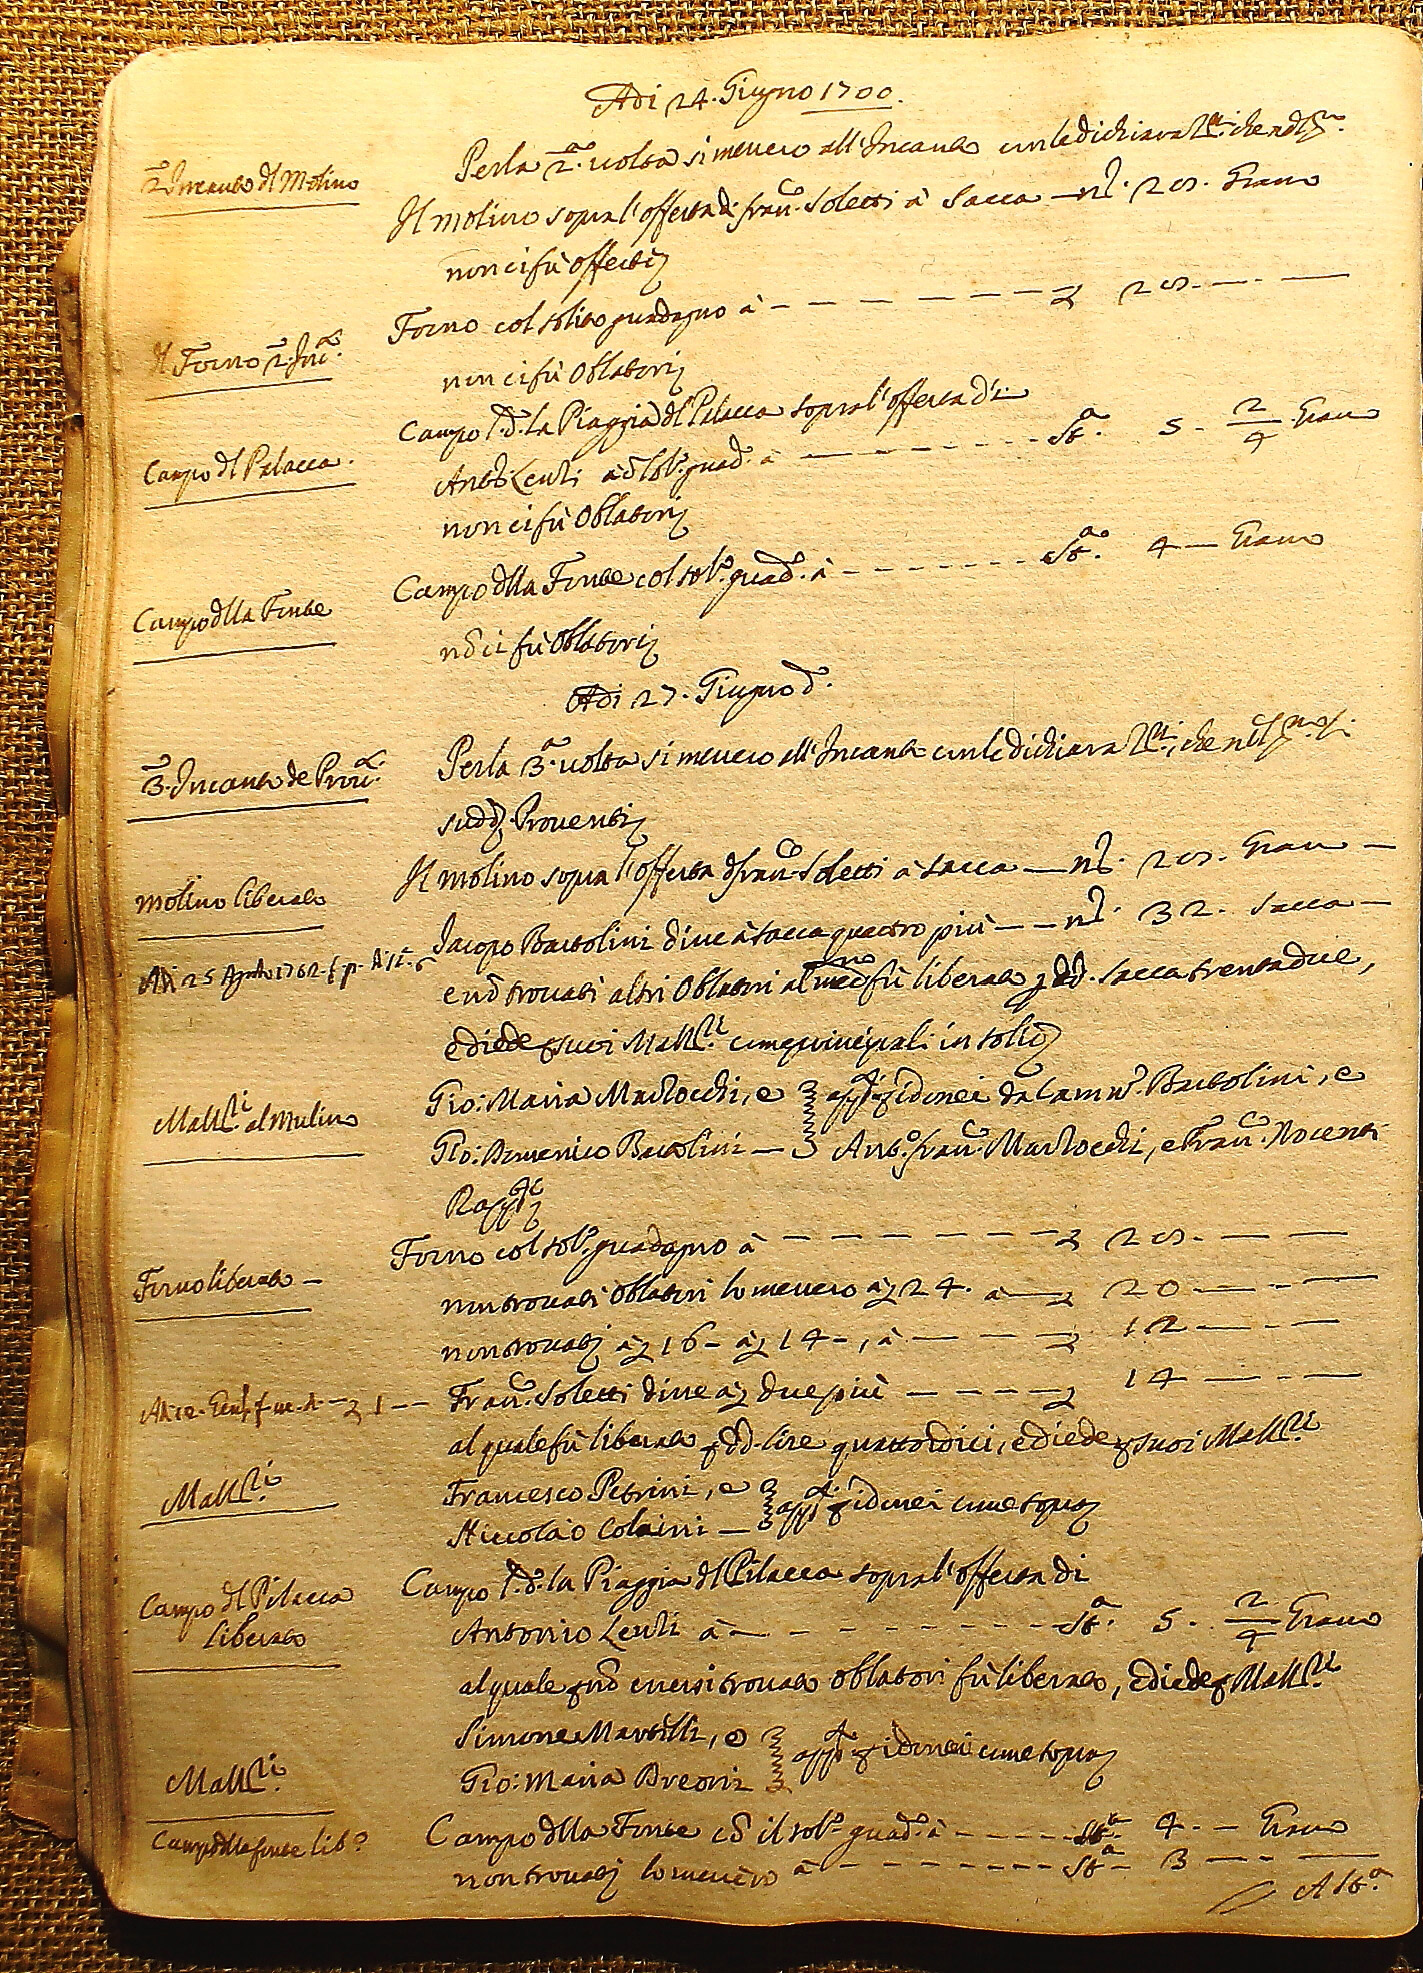 Adi 24. Giugno 1700.
2.° Incanto dl Molino
Per la 2.ª volta si messero all'Incanto con le dichiaraz.ni che
Il molino sopra l'offerta di Fran.co Soletti à sacca — n.° 28. Grano
non ci fù offerti
dl Forno 2.° Inc.°
Forno col solito guadagno à — — — — — — — 28. — — —
non ci fù Oblatori
Campo dl Palacca.
Campo l. d. la Piaggia dl Pilacca sopra l'offerta di
Ant.° Lenzi à sol.° guad.° à — — — — — St.a 5. 2/4 Grano
non ci fù Oblatori
Campo dlla Fonte
Campo dlla Fonte col sol.° guad.° à — — — — — St.a 4 — Grano
nō ci fù Oblatori
Adi 27. Giugno d.°
3.° Incanto de Prou.i
Per la 3.ª volta si messero all'Incanto con le dichiaraz.ni, che
sudd.i Prouenti
molino liberato
Il molino sopra l'offerta di Fran.co Soletti à sacca — n.° 28. Grano —
Iacopo Bartolini disse à sacca quattro più — — n.° 32. sacca —
Adi 25 Agosto 1702
e nō trouati altri Oblatori al med.mo fù liberato p dd. sacca trentadue,
e diede p suoi Mall.ri come principali in solid
Mall.ri al Mulino
Gio: Maria Marzocchi, e app.i p idonei da Cam.° Bartolini, e
Gio: Domenico Bartolini — Ant.° Fran.co Marzocchi, e Fran.co Nocenti
Rapp.ti
Forno liberato —
Forno col sol.° guadagno à — — — — — — — 28. — — —
non trouati Oblatori lo messero à 24. à — 20 — — —
non trouati à 16 — à 14 —, à — — — 12 — — —
Fran.co Soletti disse à due più — — — — 14 — — —
al quale fù liberato p dd. lire quattordici, e diede p suoi Mall.ri
Mall.ri
Francesco Petrini, e app.i p idonei come sopra
Niccolaio Colaini —
Campo dl Pilacca
liberato
Campo l. d. la Piaggia dl Pilacca sopra l'offerta di
Antonio Lenzi à — — — — — — — St.a 5. 2/4 Grano
al quale p nō essersi trouato oblatori fù liberato, e diede p Mall.ri
Mall.ri
Simone Martelli, e app.i p idonei come sopra
Gio: Maria Breoni
Campo dlla fonte lib.°
Campo dlla Fonte cō il sol.° guad.° à — — — — St.a 4. — Grano
non trouati lo messero à — — — — — — St.a 3 — — —
A St.a